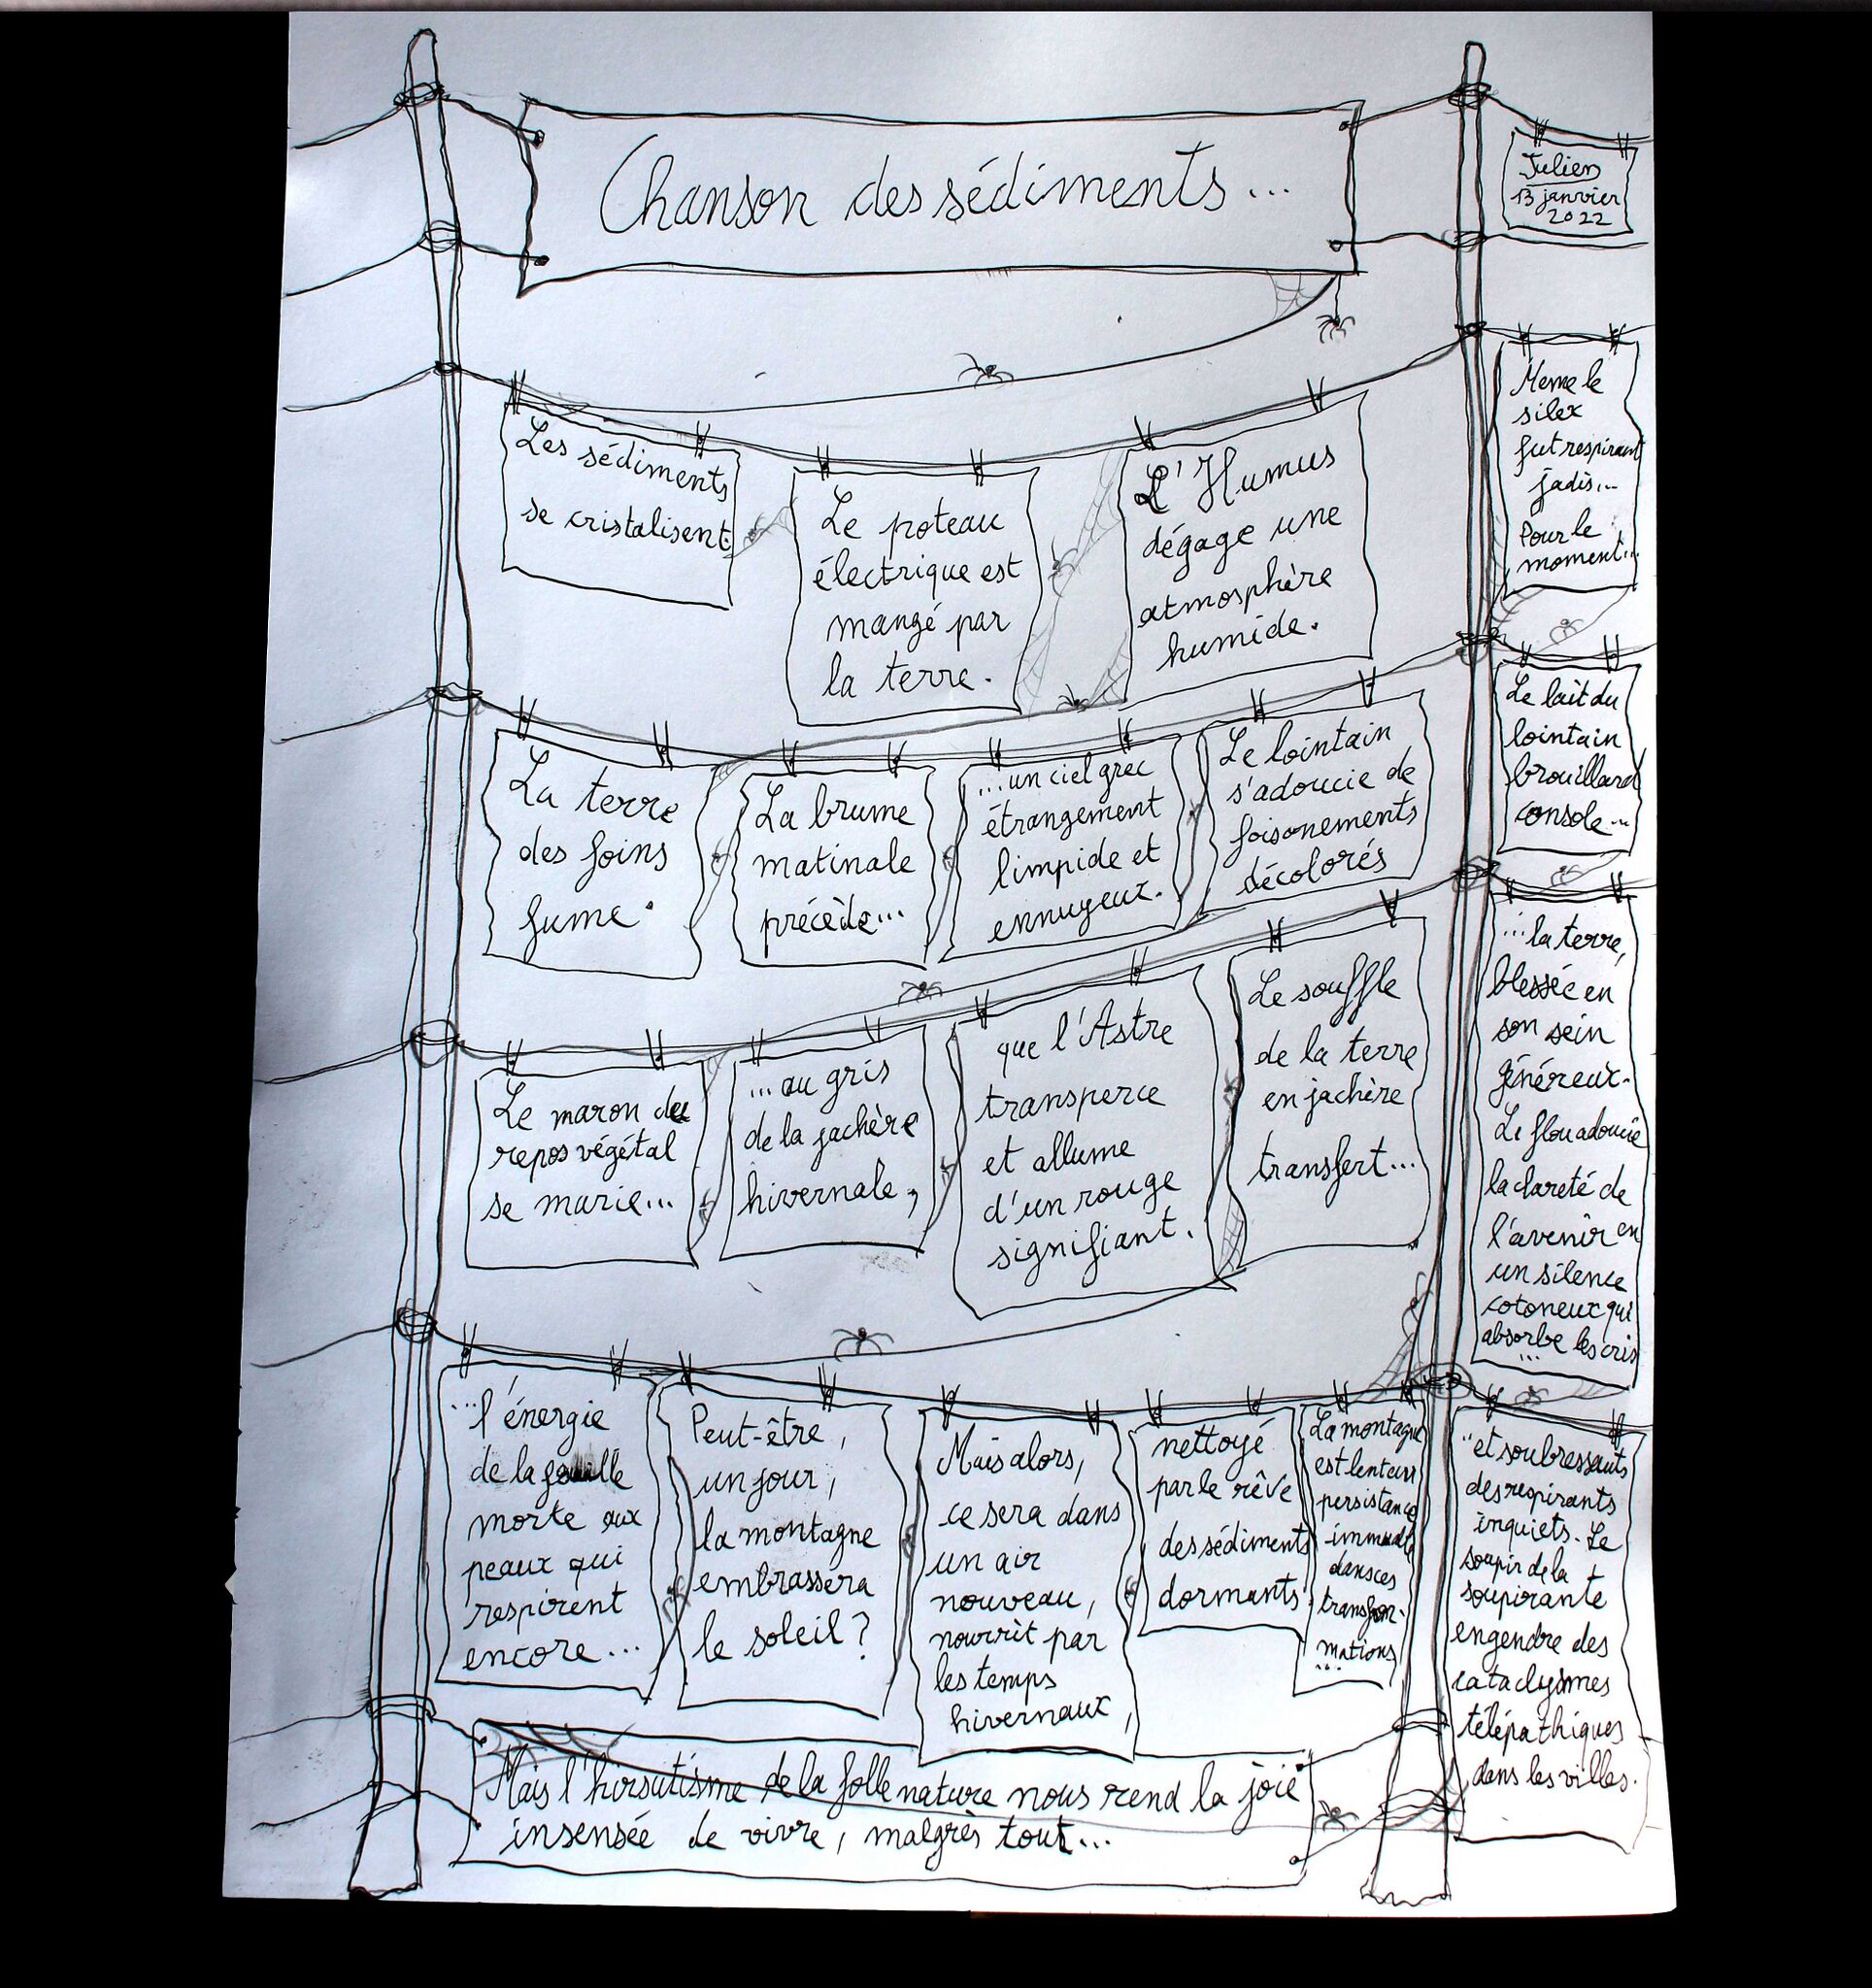 Chanson des sédiments...
Julien
13 janvier
2022
Les sédiments
se cristalisent.
Le poteau
électrique est
mangé par
la terre.
L'Humus
dégage une
atmosphère
humide.
Meme le
silex
fut respirant
jadis...
Pour le
moment...
La terre
des foins
fume.
La brume
matinale
précède...
...un ciel grec
étrangement
limpide et
ennuyeux.
Le lointain
s'adoucie de
foisonements
décolorés
Le lait du
lointain
brouillard
console...
Le maron du
repos végétal
se marie...
...au gris
de la jachère
hivernale,
que l'Astre
transperce
et allume
d'un rouge
signifiant.
Le souffle
de la terre
en jachère
transfert...
...la terre,
blessée en
son sein
généreux.
Le flou adoucie
la clareté de
l'avenir en
un silence
cotoneux qui
absorbe les cris
...
...l'énergie
de la feuille
morte aux
peaux qui
respirent
encore...
Peut-être,
un jour,
la montagne
embrassera
le soleil?
Mais alors,
ce sera dans
un air
nouveau,
nourrit par
les temps
hivernaux,
nettoyé
par le rêve
des sédiments
dormants.
La montagne
est lenteur
persistance
immuable
dans ces
transfor-
mations
...
...et soubressauts
des respirants
inquiets. Le
soupir de la
soupirante
engendre des
cataclysmes
télépathiques
dans les villes.
Mais l'hirsutisme de la folle nature nous rend la joie
insensée de vivre, malgrès tout...